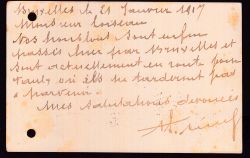 Bruxelles le 21 Janvier 1917
Monsieur Loiseau
Nos houblons sont enfin
passés hier par Bruxelles et
sont actuellement en route pour
où ils ne tarderont pas
à parvenir.
Mes salutations dévouées